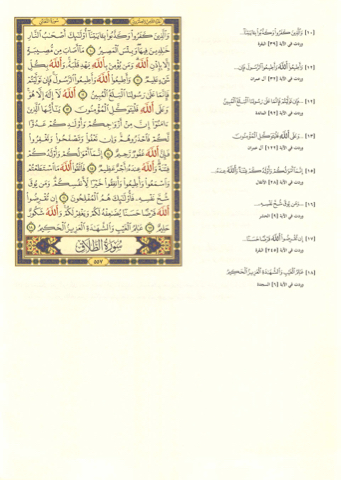 وَٱلَّذِينَ كَفَرُوا۟ وَكَذَّبُوا۟ بِـَٔايَـٰتِنَآ أُو۟لَـٰٓئِكَ أَصْحَـٰبُ ٱلنَّارِ
خَـٰلِدِينَ فِيهَا وَبِئْسَ ٱلْمَصِيرُ ١٠ مَآ أَصَابَ مِن مُّصِيبَةٍ
إِلَّا بِإِذْنِ ٱللَّهِ وَمَن يُؤْمِنۢ بِٱللَّهِ يَهْدِ قَلْبَهُۥ وَٱللَّهُ بِكُلِّ
شَىْءٍ عَلِيمٌ ١١ وَأَطِيعُوا۟ ٱللَّهَ وَأَطِيعُوا۟ ٱلرَّسُولَ فَإِن تَوَلَّيْتُمْ
فَإِنَّمَا عَلَىٰ رَسُولِنَا ٱلْبَلَـٰغُ ٱلْمُبِينُ ١٢ ٱللَّهُ لَآ إِلَـٰهَ إِلَّا هُوَ
وَعَلَى ٱللَّهِ فَلْيَتَوَكَّلِ ٱلْمُؤْمِنُونَ ١٣ يَـٰٓأَيُّهَا ٱلَّذِينَ
ءَامَنُوٓا۟ إِنَّ مِنْ أَزْوَٰجِكُمْ وَأَوْلَـٰدِكُمْ عَدُوًّا
لَّكُمْ فَٱحْذَرُوهُمْ وَإِن تَعْفُوا۟ وَتَصْفَحُوا۟ وَتَغْفِرُوا۟
فَإِنَّ ٱللَّهَ غَفُورٌ رَّحِيمٌ ١٤ إِنَّمَآ أَمْوَٰلُكُمْ وَأَوْلَـٰدُكُمْ
فِتْنَةٌ وَٱللَّهُ عِندَهُۥٓ أَجْرٌ عَظِيمٌ ١٥ فَٱتَّقُوا۟ ٱللَّهَ مَا ٱسْتَطَعْتُمْ
وَٱسْمَعُوا۟ وَأَطِيعُوا۟ وَأَنفِقُوا۟ خَيْرًا لِّأَنفُسِكُمْ وَمَن يُوقَ
شُحَّ نَفْسِهِۦ فَأُو۟لَـٰٓئِكَ هُمُ ٱلْمُفْلِحُونَ ١٦ إِن تُقْرِضُوا۟
ٱللَّهَ قَرْضًا حَسَنًا يُضَـٰعِفْهُ لَكُمْ وَيَغْفِرْ لَكُمْ وَٱللَّهُ شَكُورٌ
حَلِيمٌ ١٧ عَـٰلِمُ ٱلْغَيْبِ وَٱلشَّهَـٰدَةِ ٱلْعَزِيزُ ٱلْحَكِيمُ ١٨
سُورَةُ الطَّلَاقِ
٥٥٧
[١٠] وَٱلَّذِينَ كَفَرُوا۟ وَكَذَّبُوا۟ بِـَٔايَـٰتِنَآ...
وردت في الآية [٣٩] البقرة
[١٢] وَأَطِيعُوا۟ ٱللَّهَ وَأَطِيعُوا۟ ٱلرَّسُولَ فَإِن...
[١٢] ...فَإِن تَوَلَّيْتُمْ فَإِنَّمَا عَلَىٰ رَسُولِنَا ٱلْبَلَـٰغُ ٱلْمُبِينُ
وردت في الآية [٩٢] المائدة
[١٣] ...وَعَلَى ٱللَّهِ فَلْيَتَوَكَّلِ ٱلْمُؤْمِنُونَ
وردت في الآية [١٢٢] آل عمران
[١٥] إِنَّمَآ أَمْوَٰلُكُمْ وَأَوْلَـٰدُكُمْ فِتْنَةٌ وَٱللَّهُ عِندَهُۥٓ...
وردت في الآية [٢٨] الأنفال
[١٦] ...وَمَن يُوقَ شُحَّ نَفْسِهِۦ...
وردت في الآية [٩] الحشر
[١٧] إِن تُقْرِضُوا۟ ٱللَّهَ قَرْضًا حَسَنًا...
وردت في الآية [٢٤٥] البقرة
[١٨] عَـٰلِمُ ٱلْغَيْبِ وَٱلشَّهَـٰدَةِ ٱلْعَزِيزُ ٱلْحَكِيمُ
وردت في الآية [٦] السجدة